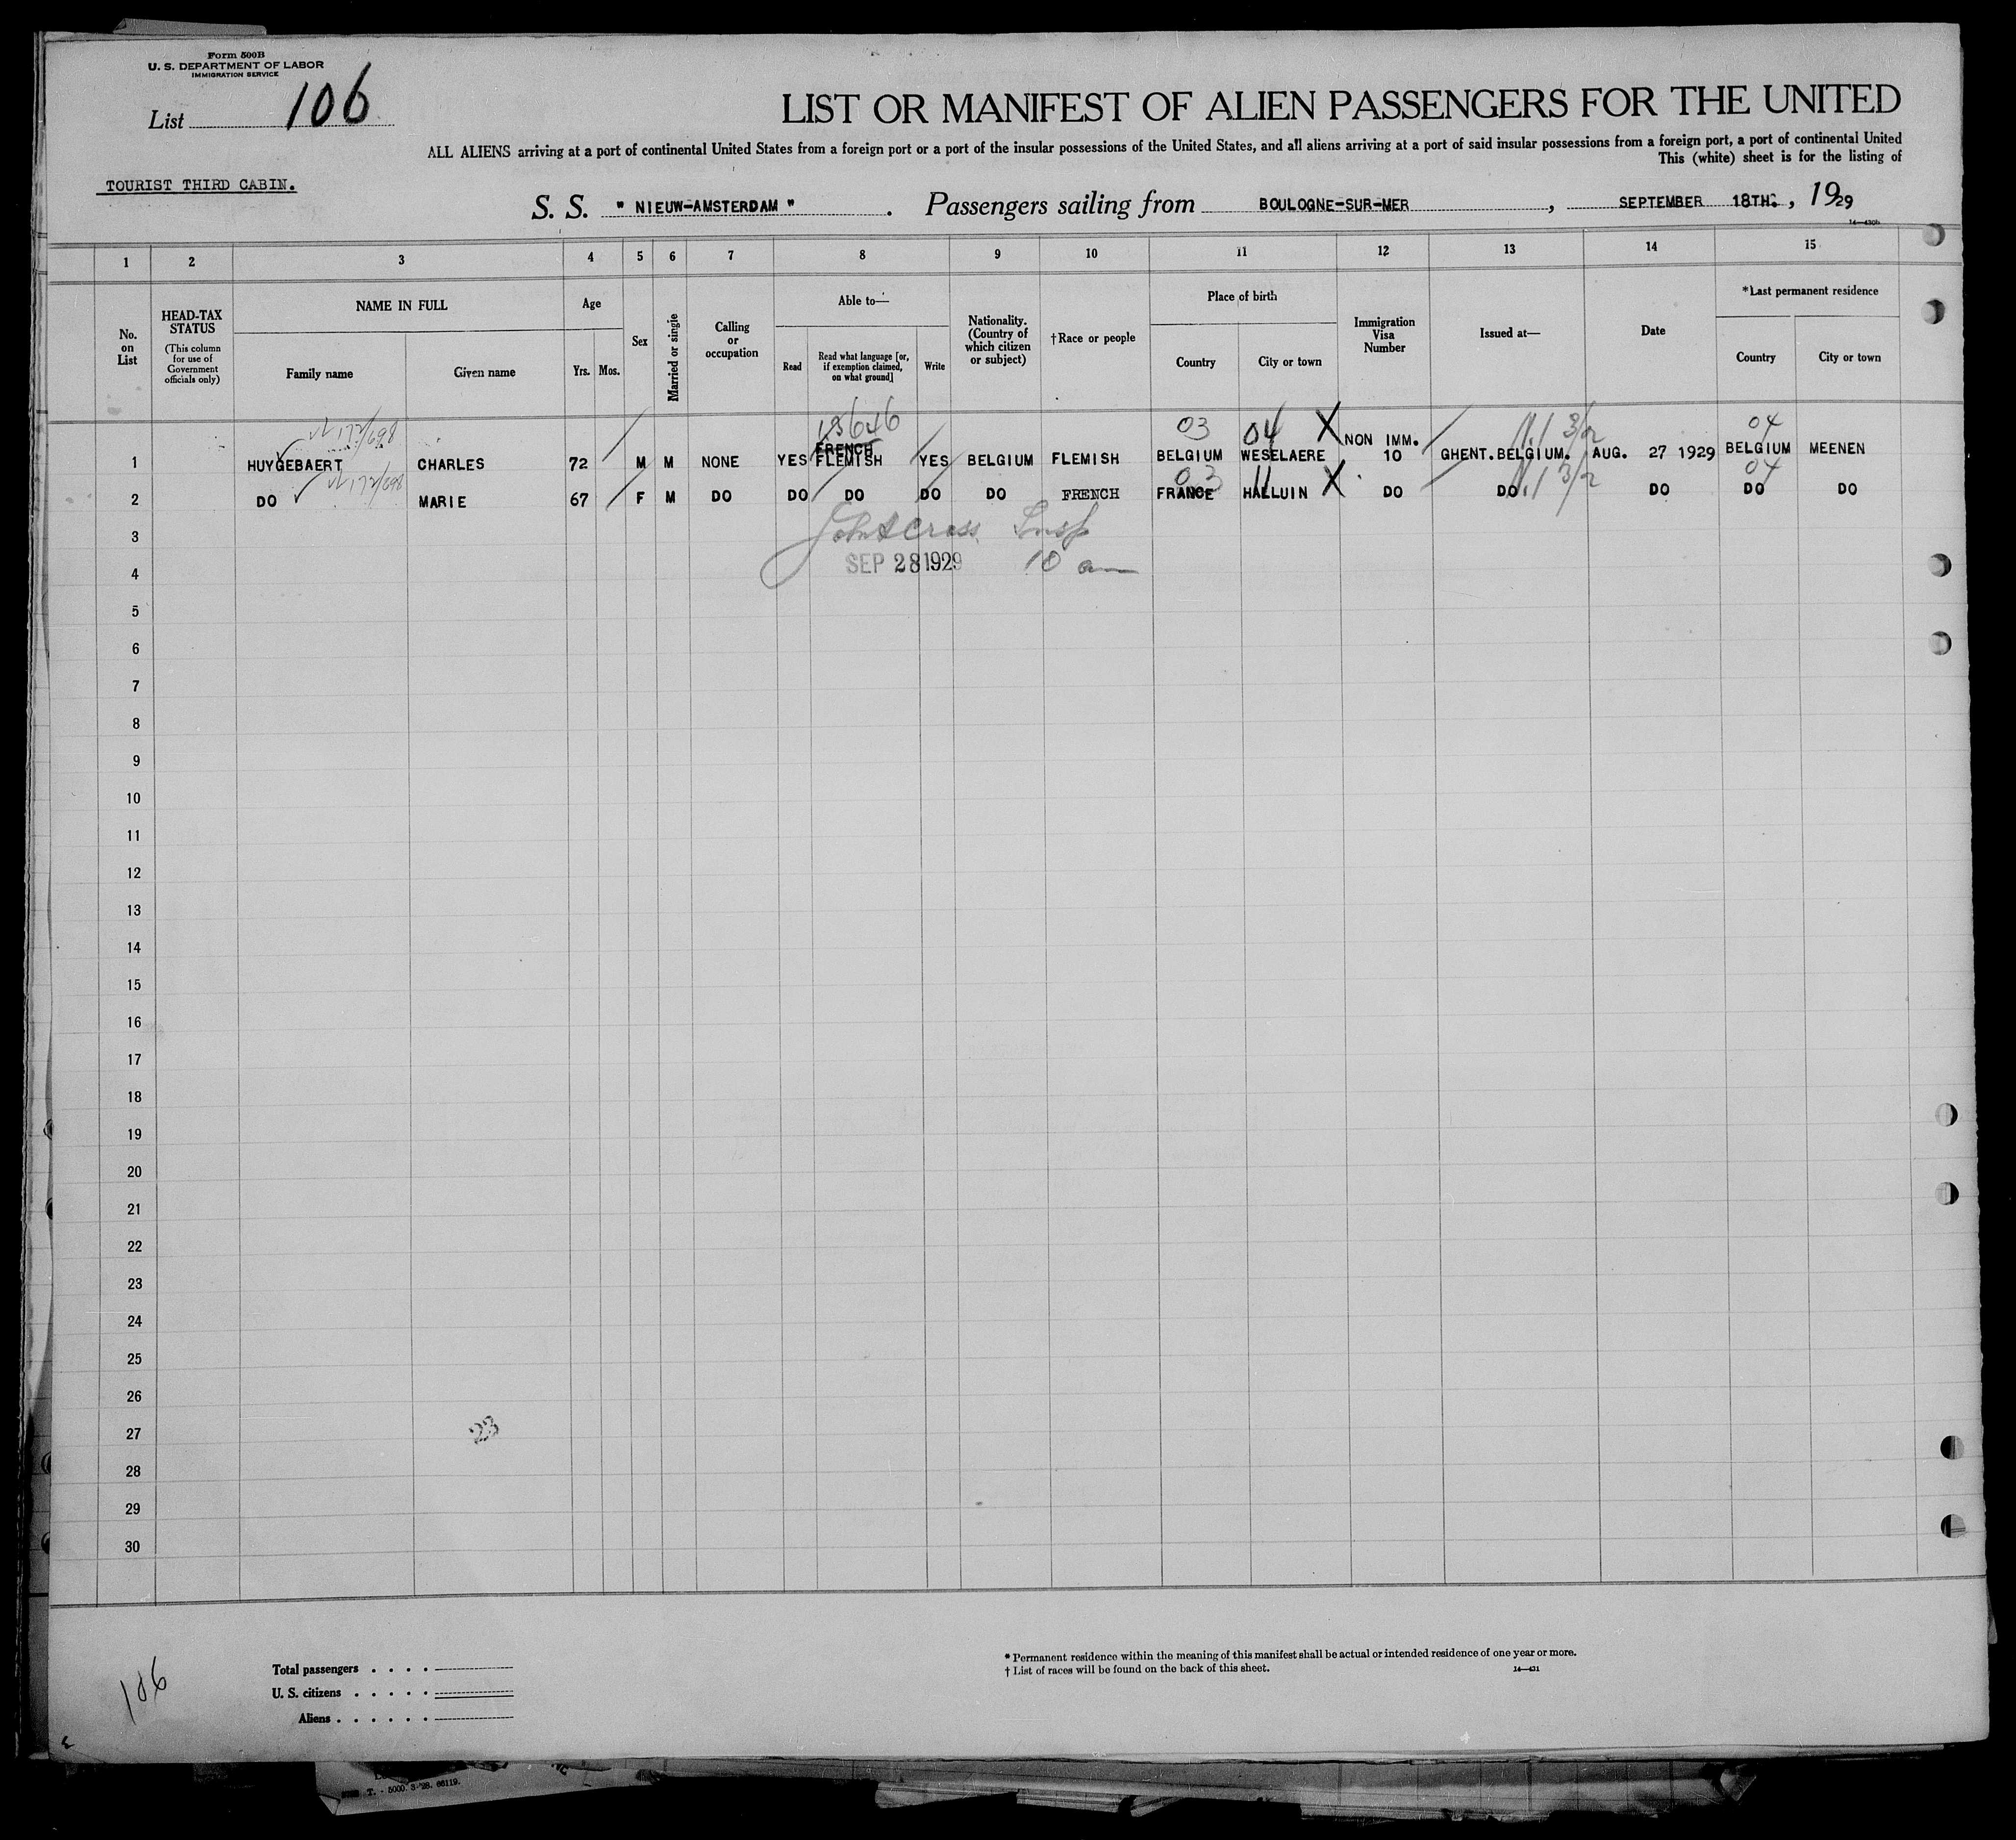 Form 500B
U. S. DEPARTMENT OF LABOR
IMMIGRATION SERVICE
List 106
LIST OR MANIFEST OF ALIEN PASSENGERS FOR THE UNITED
ALL ALIENS arriving at a port of continental United States from a foreign port or a port of the insular possessions of the United States, and all aliens arriving at a port of said insular possessions from a foreign port, a port of continental United
This (white) sheet is for the listing of
TOURIST THIRD CABIN.
S. S. " NIEUW-AMSTERDAM " . Passengers sailing from BOULOGNE-SUR-MER , SEPTEMBER 18TH. , 1929
1 2 3 4 5 6 7 8 9 10 11 12 13 14 15
No. on List
HEAD-TAX STATUS
(This column for use of Government officials only)
NAME IN FULL
Family name
Given name
Age
Yrs. Mos.
Sex
Married or single
Calling or occupation
Able to—
Read
Read what language [or, if exemption claimed, on what ground]
Write
Nationality. (Country of which citizen or subject)
†Race or people
Place of birth
Country
City or town
Immigration Visa Number
Issued at—
Date
*Last permanent residence
Country
City or town
03 04 X 04
FRENCH NON IMM.
1 HUYGEBAERT CHARLES 72 M M NONE YES FLEMISH YES BELGIUM FLEMISH BELGIUM WESELAERE 10 GHENT.BELGIUM. AUG. 27 1929 BELGIUM MEENEN
03 11 X 3/2 04
2 DO MARIE 67 F M DO DO DO DO DO FRENCH FRANCE HALLUIN DO DO DO DO DO
3
SEP 28 1929 10 am
4
5
6
7
8
9
10
11
12
13
14
15
16
17
18
19
20
21
22
23
24
25
26
27
23
28
29
30
Total passengers
U. S. citizens
Aliens
106
* Permanent residence within the meaning of this manifest shall be actual or intended residence of one year or more.
† List of races will be found on the back of this sheet.
14—431
T. - 5000. 3-'28. 66119.